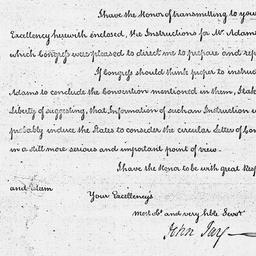 I have the Honor of transmitting to your
Excellency herewith enclosed, the Instructions for Mr Adams
which Congress was pleased to direct me to prepare and rep
If Congress should think proper to instruc
Adams to conclude the Convention mentioned in them, I take
Liberty of suggesting, that Information of such an Instruction w
probably induce the States to consider the circular Letter of Con
in a still more serious and important point of view.
I have the Honor to be with great Resp
and Esteem
Your Excellency's
most obt and very hble Servt
John Jay